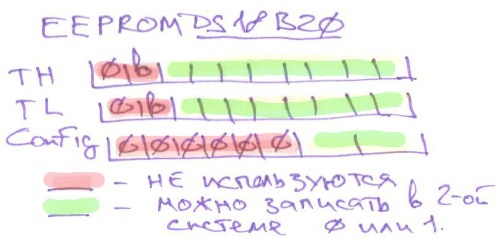 EEPROM DS18B20
TH 0b
TL 0b
Config 000000
- не используются
- можно записать в 2-ой
системе 0 или 1.